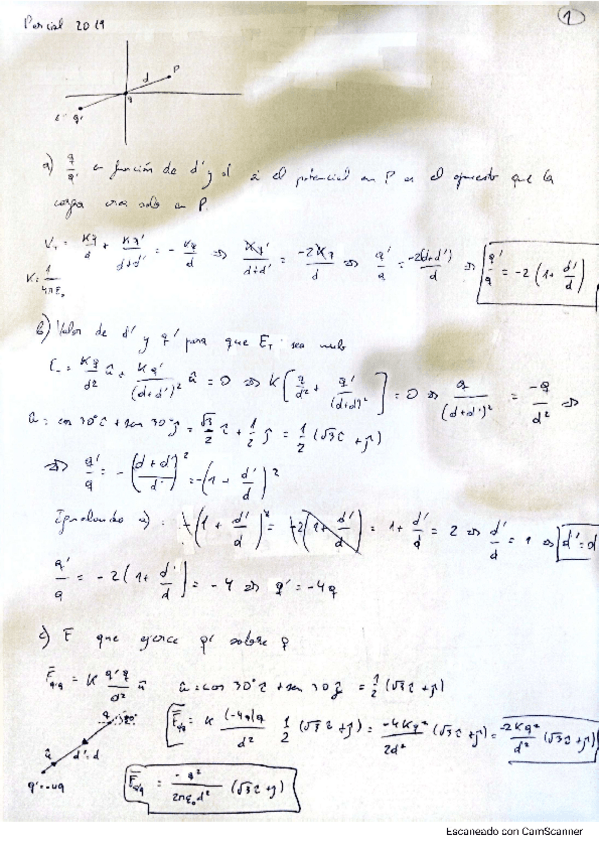 Parcial 2019
1
P
d
q
q'
a) q/q' en función de d' y d si el potencial en P es el opuesto que la
carga crea sola en P.
V_T = Kq/d + Kq'/(d+d') = - Kq/d ⇒ Kq'/(d+d') = -2Kq/d ⇒ q'/q = -2(d+d')/d ⇒ q'/q = -2(1 + d'/d)
K = 1/4πε₀
b) Valor de d' y q' para que E_T sea nulo
E = Kq/d² û + Kq'/(d+d')² û = 0 ⇒ K[q/d² + q'/(d+d')²] = 0 ⇒ q/(d+d')² = -q/d² ⇒
û = cos 30° î + sen 30° ĵ = √3/2 î + 1/2 ĵ = 1/2 (√3 î + ĵ)
⇒ q'/q = -((d+d')/d')² = -(1 + d'/d)²
Igualando a): -(1 + d'/d)² = -2(1 + d'/d) = 1 + d'/d = 2 ⇒ d'/d = 1 ⇒ d' = d
q'/q = -2(1 + d'/d) = -4 ⇒ q' = -4q
c) F que ejerce q' sobre q
F_q'q = K q'q/d² û û = cos 30° î + sen 30 ĵ = 1/2 (√3 î + ĵ)
q 30°
û d' = d
q' = -4q
F_q'q = K (-4q)q/d² 1/2 (√3 î + ĵ) = -4Kq²/2d² (√3 î + ĵ) = -2Kq²/d² (√3 î + ĵ)
F_q'q = -q²/2πε₀d² (√3 î + ĵ)
Escaneado con CamScanner